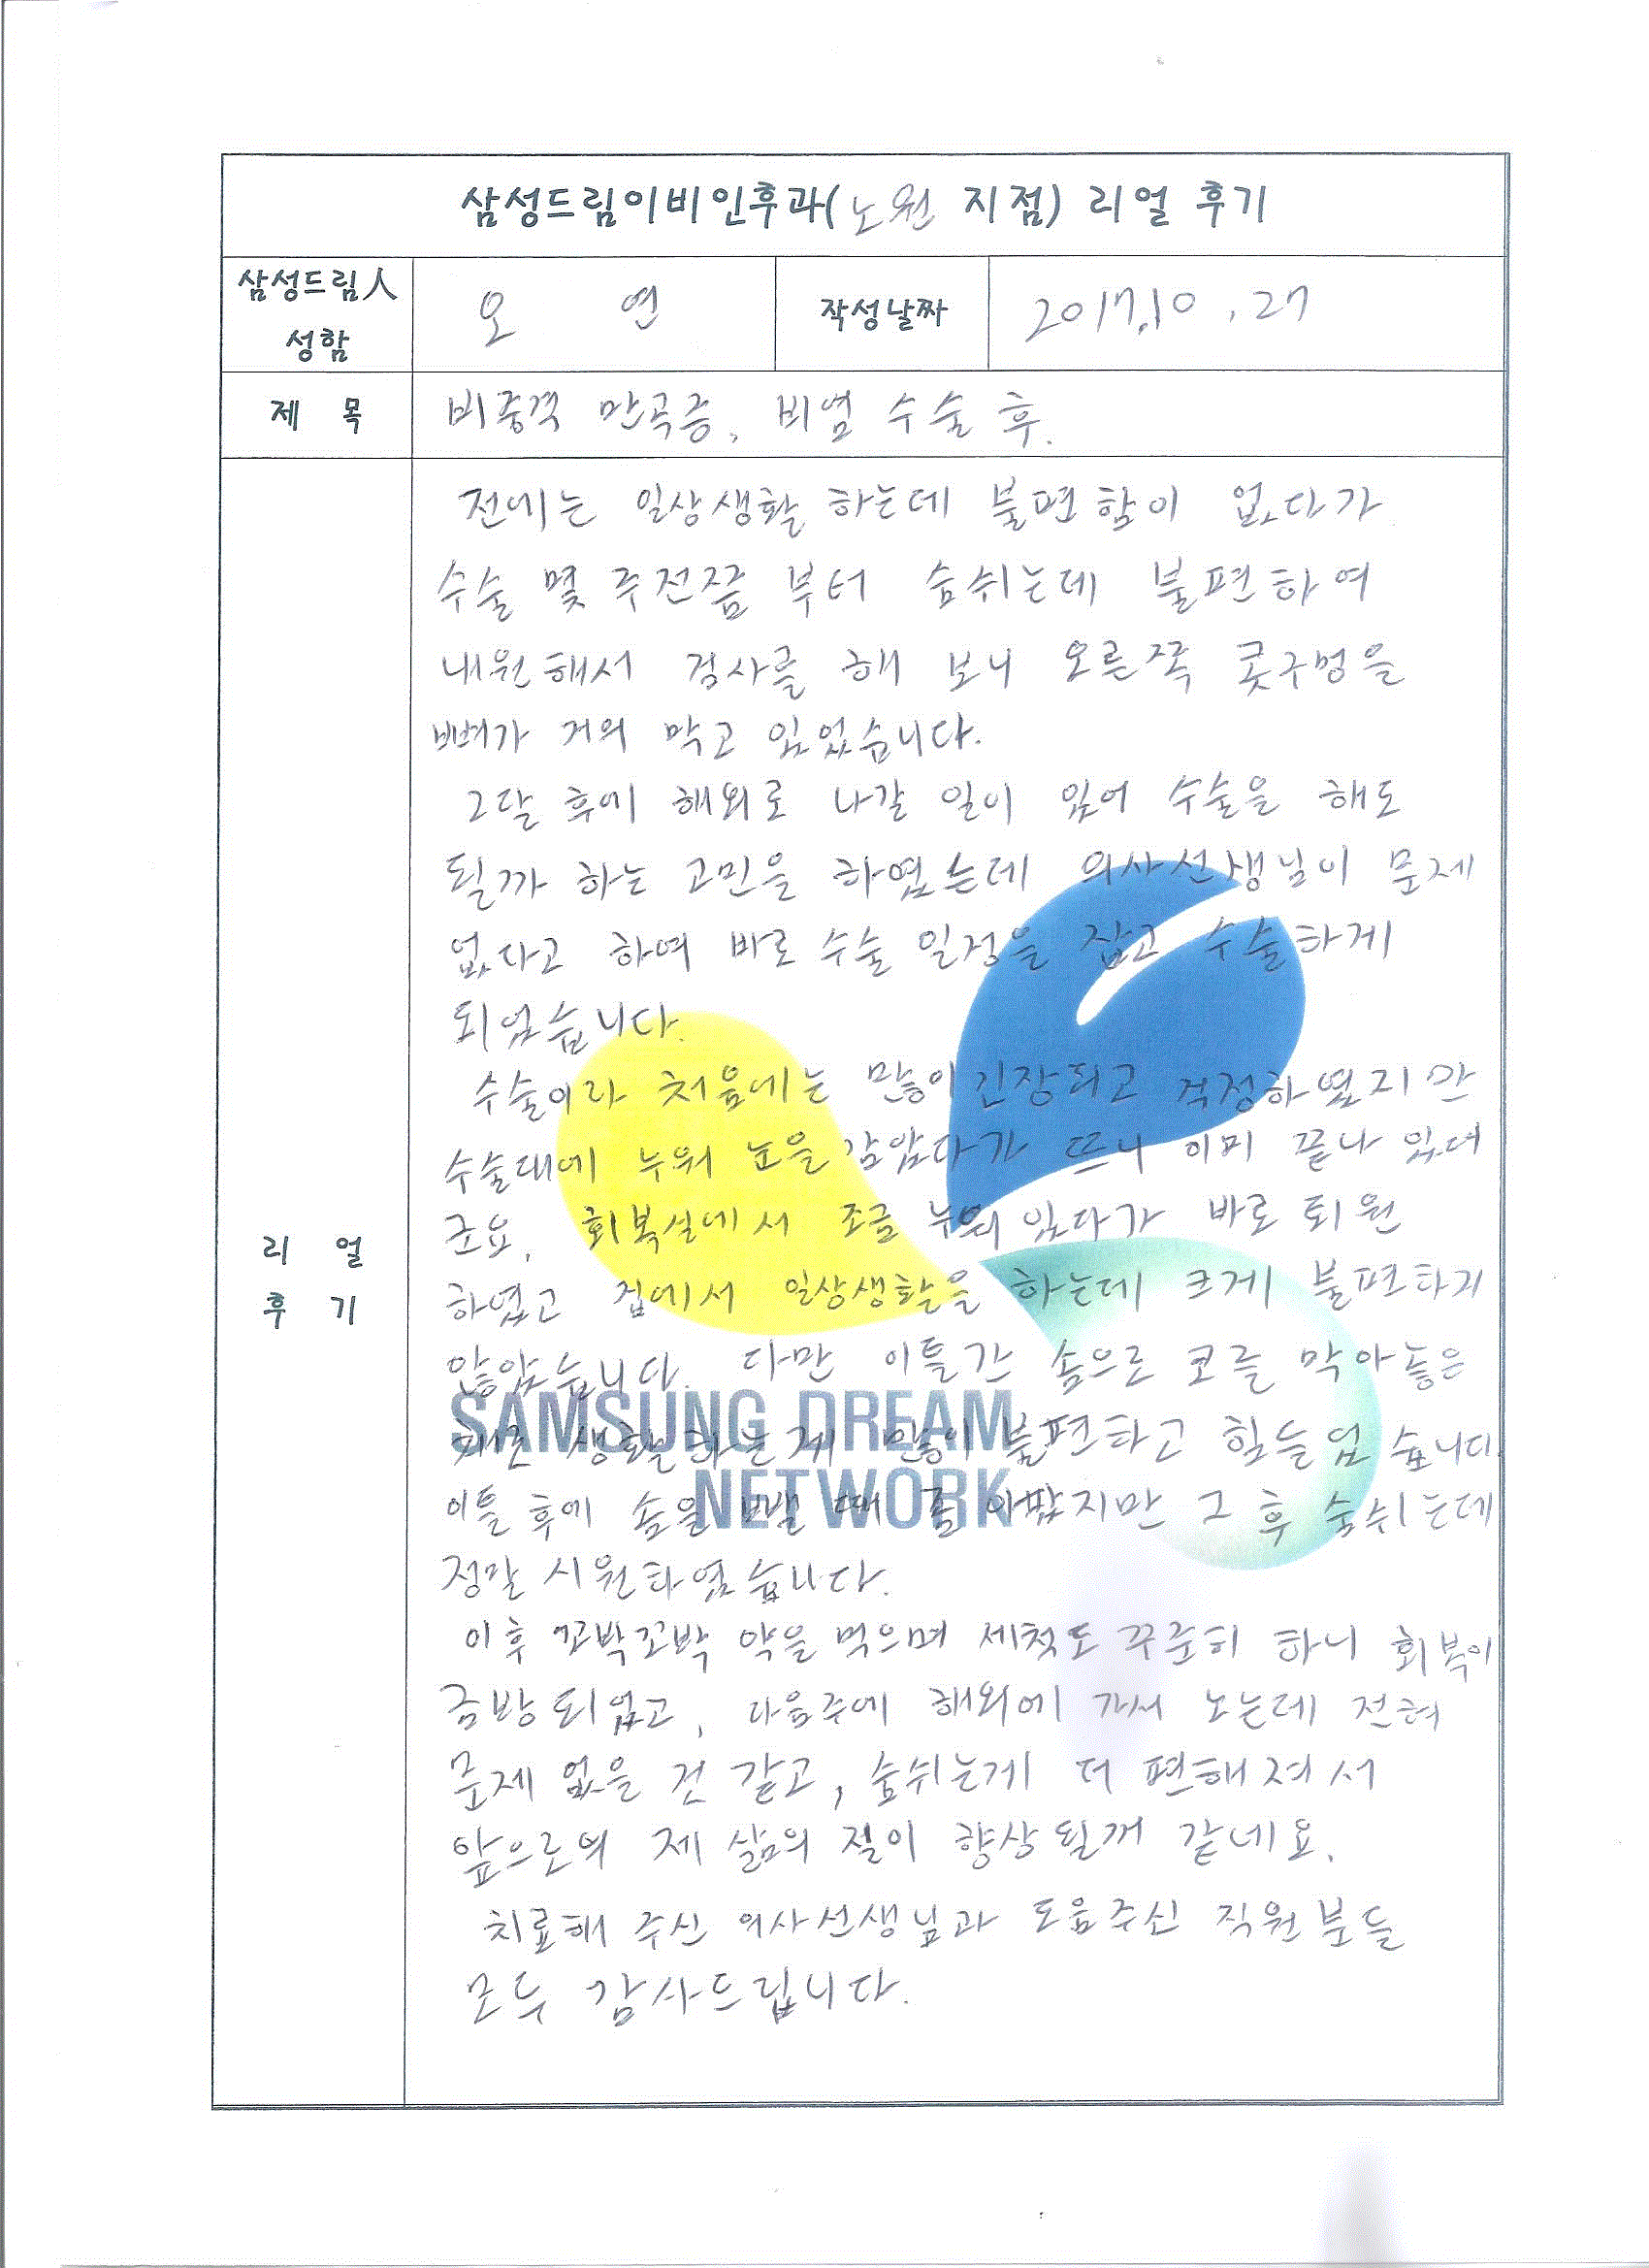 삼성드림이비인후과(노원 지점) 리얼 후기
삼성드림人 성함
오 연
작성날짜
2017.10.27
제 목
비중격 만곡증, 비염 수술 후.
리 얼 후 기
전에는 일상생활 하는데 불편함이 없다가
수술 몇 주전쯤 부터 숨쉬는데 불편하여
내원해서 검사를 해 보니 오른쪽 콧구멍을
뼈가 거의 막고 있었습니다.
그달 후에 해외로 나갈 일이 있어 수술을 해도
될까 하는 고민을 하였는데 의사선생님이 문제
없다고 하여 바로 수술 일정을 잡고 수술하게
되었습니다.
수술이라 처음에는 많이 긴장되고 걱정하였지만
수술대에 누워 눈을 감았다가 뜨니 이미 끝나 있더
군요, 회복실에서 조금 누워있다가 바로 퇴원
하였고 집에서 일상생활을 하는데 크게 불편하지
않았습니다. 다만 이틀간 솜으로 코를 막아놓은
채로 생활하는게 많이 불편하고 힘들었습니다.
이틀 후에 솜을 빼낼 때 좀 아팠지만 그 후 숨쉬는데
정말 시원하였습니다.
이후 꼬박꼬박 약을 먹으며 세척도 꾸준히 하니 회복이
금방 되었고, 다음주에 해외에 가서 노는데 전혀
문제 없을 건 같고, 숨쉬는게 더 편해져서
앞으로의 제 삶의 질이 향상될꺼 같네요.
치료해 주신 의사선생님과 도움주신 직원분들
모두 감사드립니다.
SAMSUNG DREAM
NETWORK